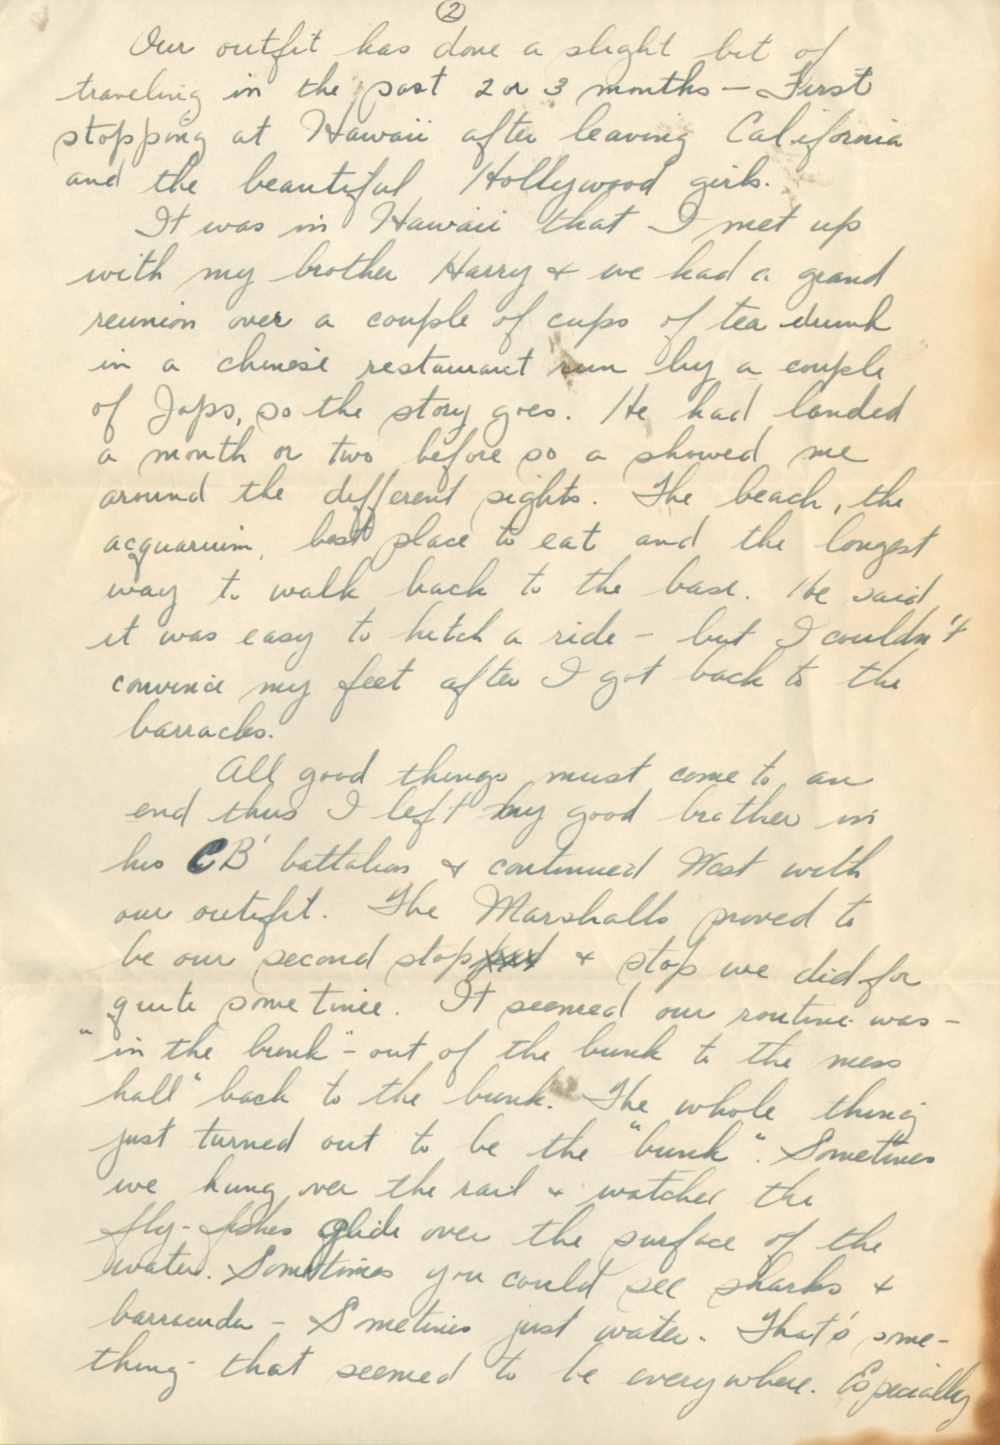 2
Our outfit has done a slight bit of
traveling in the past 2 or 3 months — First
stopping at Hawaii after leaving California
and the beautiful Hollywood girls.
It was in Hawaii that I met up
with my brother Harry & we had a grand
reunion over a couple of cups of tea drunk
in a chinese restaurant run by a couple
of Japs, so the story goes. He had landed
a month or two before so a showed me
around the different sights. The beach, the
acquarium, best place to eat and the longest
way to walk back to the base. He said
it was easy to hitch a ride — but I couldn't
convince my feet after I got back to the
barracks.
All good things must come to an
end thus I left my good brother in
his CB' battalion & continued West with
our outfit. The Marshalls proved to
be our second stop & stop we did for
quite some time. It seemed our routine was —
"in the bunk" — out of the bunk to the mess
hall" back to the bunk. The whole thing
just turned out to be the "bunk". Sometimes
we hung over the rail & watched the
fly-fishes glide over the surface of the
water. Sometimes you could see sharks &
barracuda — Sometimes just water. That's some-
thing that seemed to be everywhere. Especially